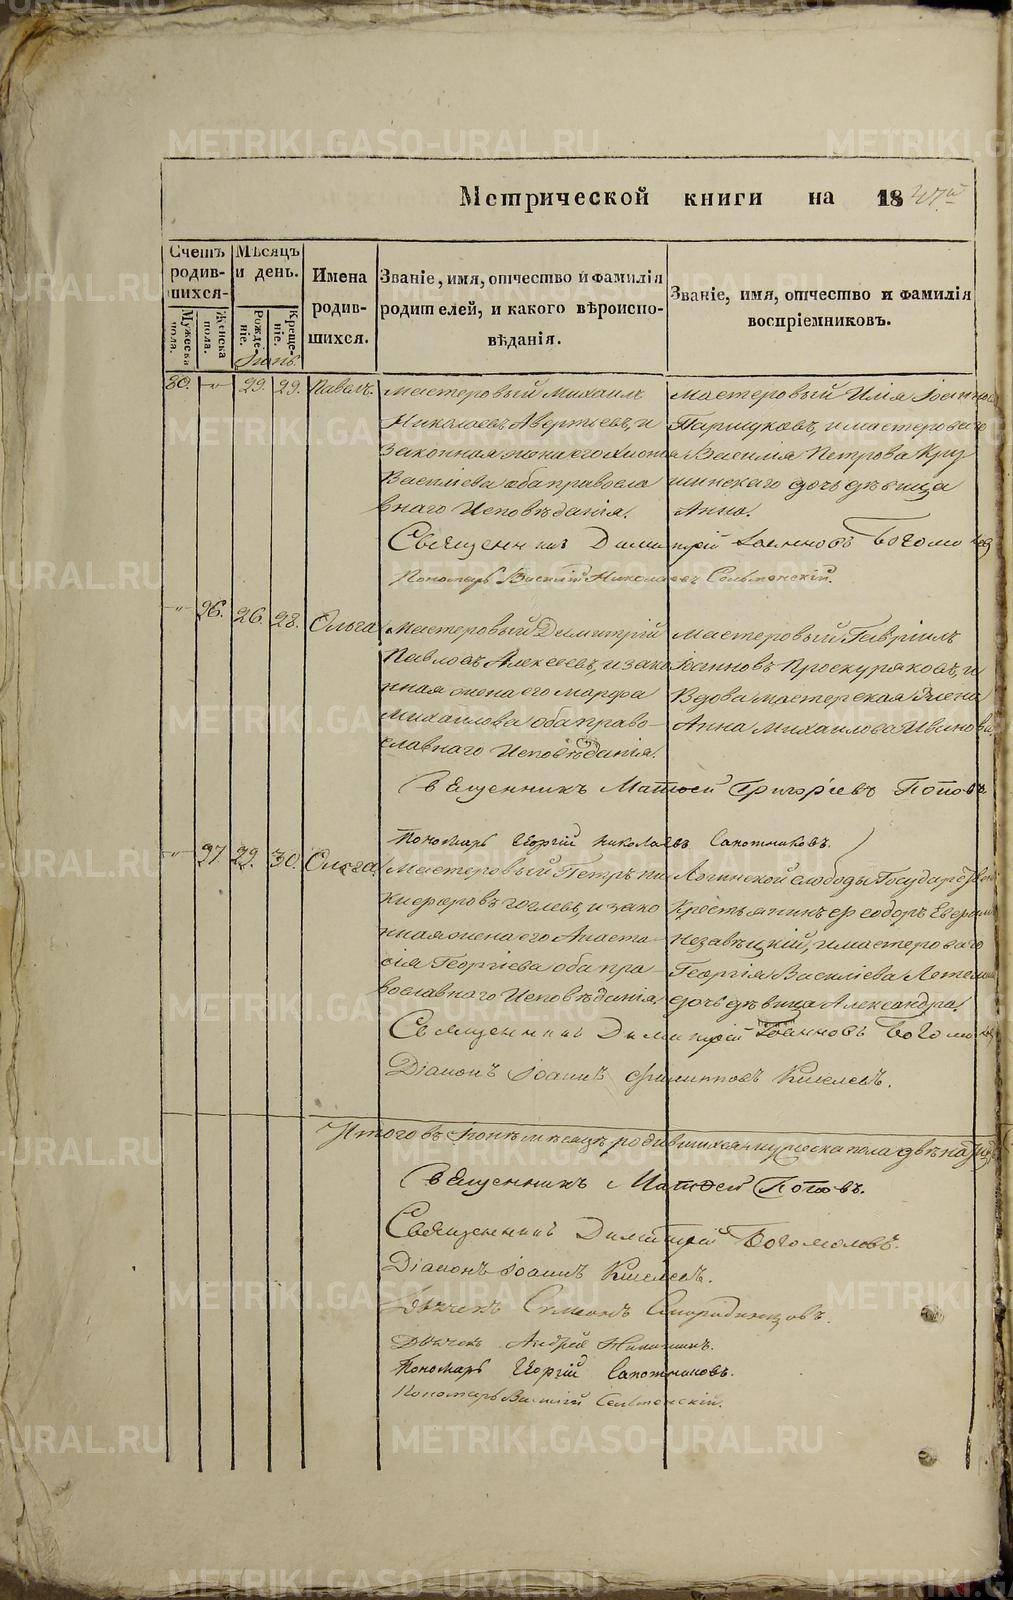 METRIKI.GASO-URAL.RU
Метрической книги на 1847й
Счетъ родившихся.
Мужеска пола.
Женска пола.
Мѣсяцъ и день.
Рожденіе.
Крещеніе.
Имена родившихся.
Званіе, имя, отчество и фамилія родителей, и какого вѣроисповѣданія.
Званіе, имя, отчество и фамилія воспріемниковъ.
Іюнь.
80. -"- 29. 29. Павелъ.
Мастеровый Михаилъ
Николаевъ Авертьевъ, и
законная жена его Хіонія
Васильева оба правосла
внаго Исповѣданія.
Мастеровый Илія Іоанновъ
и мастероваго
Василія Петрова
дочь дѣвица
Анна.
Священникъ Димитрій Іоанновъ Богомоловъ
Пономарь Василій Николаевъ Сельменскій.
-"- 26. 28. Ольга
Мастеровый Димитрій
Павловъ Алексеевъ, и зако
нная жена его Марфа
Михаилова оба право-
славнаго Исповѣданія.
Мастеровый Гавріилъ
Іоанновъ Проскуряковъ, и
Вдова мастерская жена
Анна Михаилова
Священникъ Матѳей Григорьевъ Поповъ
Пономарь Георгій Николаевъ Сапожниковъ.
-"- 97 29. 30. Ольга.
Мастеровый Петръ Ни
кифоровъ Гоглевъ, и зако
нная жена его Анаста-
сія Георгіева оба пра-
вославнаго Исповѣданія
слободы Государственный
Крестьянинъ Ѳеодоръ
и мастероваго
Георгія Василіева
дочь дѣвица Александра.
Священникъ Димитрій Іоанновъ Богомоловъ
Діаконъ Іоаннъ Филипповъ Киселевъ.
Итого въ Іюнѣ мѣсяцѣ родившихся мужеска пола двѣнадцать
Священникъ Матѳей Поповъ.
Священникъ Димитрій Богомоловъ.
Діаконъ Іоаннъ Киселевъ.
Дьячекъ Симеонъ Смородинцовъ.
Дьячекъ Андрей
Пономарь Георгій Сапожниковъ.
Пономарь Василій Сельменскій.